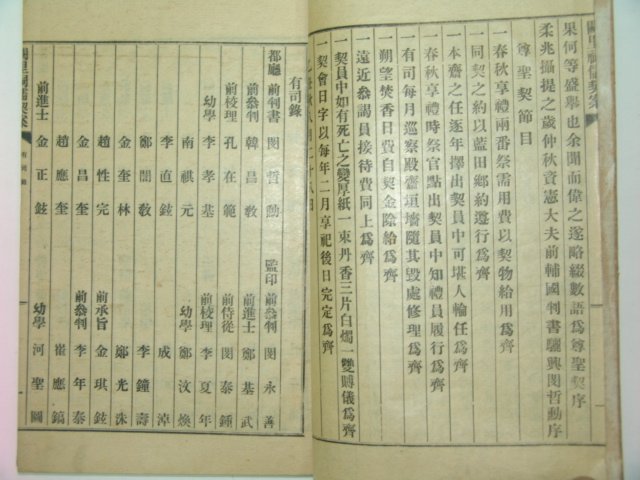 闕里祠儒契案
果何等盛擧也余聞而偉之遂略綴數語爲尊聖契序
柔兆攝提之歲仲秋資憲大夫前輔國判書驪興閔哲勳序
尊聖契節目
一春秋享禮兩番祭需用費以契物給用爲齊
一同契之約以藍田鄕約遵行爲齊
一本齋之任逐年擇出契員中可堪人輪任爲齊
一春秋享禮時祭官點出契員中知禮員履行爲齊
一有司每月巡察殿齋垣墻隨其毁處修理爲齊
一朔望焚香日費自契金除給爲齊
一遠近參謁員接待費同上爲齊
一契員中如有死亡之變厚紙一束丹香三片白燭一雙賻儀爲齊
一契會日字以每年二月享祀後日完定爲齊
有司錄
都廳 前判書 閔哲勳 監印 前參判 閔永善
前參判 韓昌敎 前進士 鄭基武
前校理 孔在範 前侍從 閔泰鍾
幼學 李孝基 前校理 李夏年
南祺元 幼學 鄭汶煥
李直鉉 成淖
鄭閏敎 李鐘壽
金奎林 鄭光洙
趙性完 前承旨 金琪鉉
金昌奎 前參判 李年泰
趙應奎 崔應鎬
前進士 金正鉉 幼學 河聖圖
有司錄